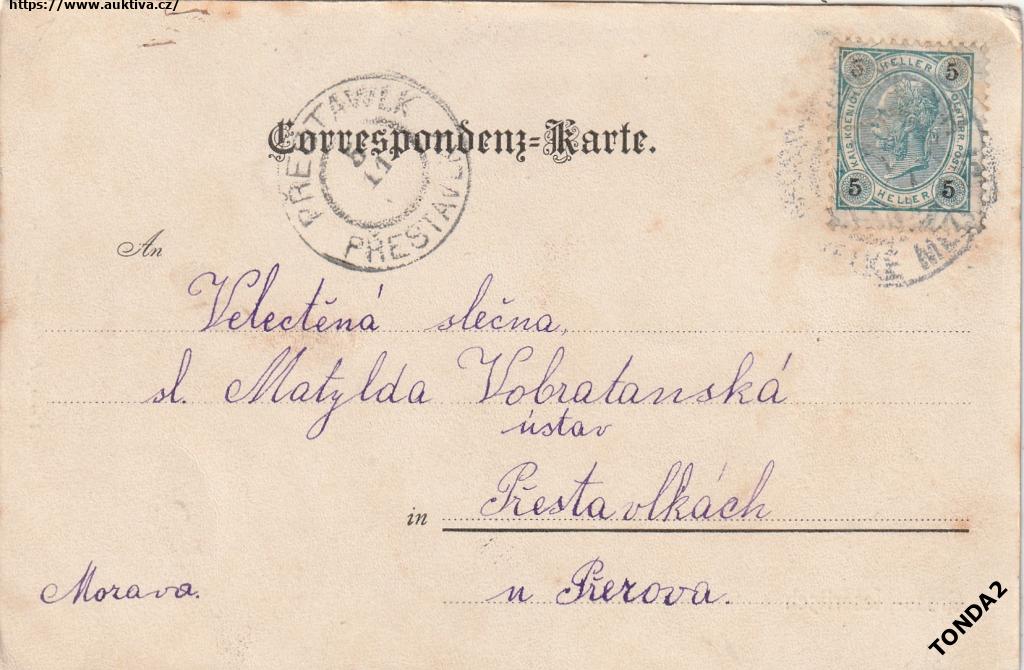 https://www.auktiva.cz/
PŘESTAWLK
PŘESTAVL
Correspondenz-Karte.
5 HELLER 5
KAIS. KOENIGL. OESTERR. POST
5 HELLER 5
An
Velectěná slečna,
sl. Matylda Vobratanská
ústav
in Přestavlkách
Morava. u Přerova.
TONDA2